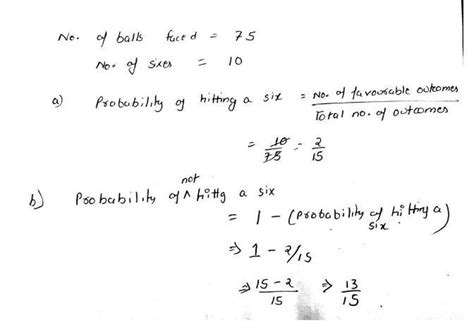 No. of balls faced = 75
No. of sixes = 10
a) Probability of hitting a six = No. of favourable outcomes / Total no. of outcomes
= 10/75 = 2/15
b) Probability of not hittg a six
= 1 - (Probability of hitting a six)
⇒ 1 - 2/15
⇒ 15-2/15 ⇒ 13/15